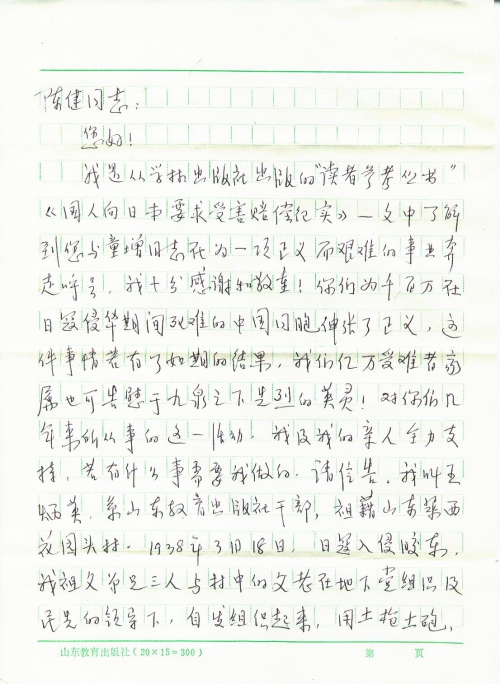 陈健同志：
您好！
我是从学林出版社出版的"读者参考丛书"
《国人向日本要求受害赔偿纪实》一文中了解
到您与童增同志在为一项正义而艰难的事业奔
走呼号，我十分感谢和敬重！你们为千百万在
日寇侵华期间死难的中国同胞伸张了正义，这
件事情若有了如期的结果，我们亿万受难者家
属也可告慰于九泉之下先烈的英灵！对你们几
年来所从事的这一活动，我及我的亲人全力支
持，若有什么事需要我做的，请信告。我叫王
炳英，系山东教育出版社干部，祖籍山东莱西
花园头村。1938年3月18日，日寇入侵胶东，
我祖父弟兄三人与村中的父老在地下党组织及
民兵的领导下，自发组织起来，用土枪土炮，
山东教育出版社（20×15＝300） 第 页